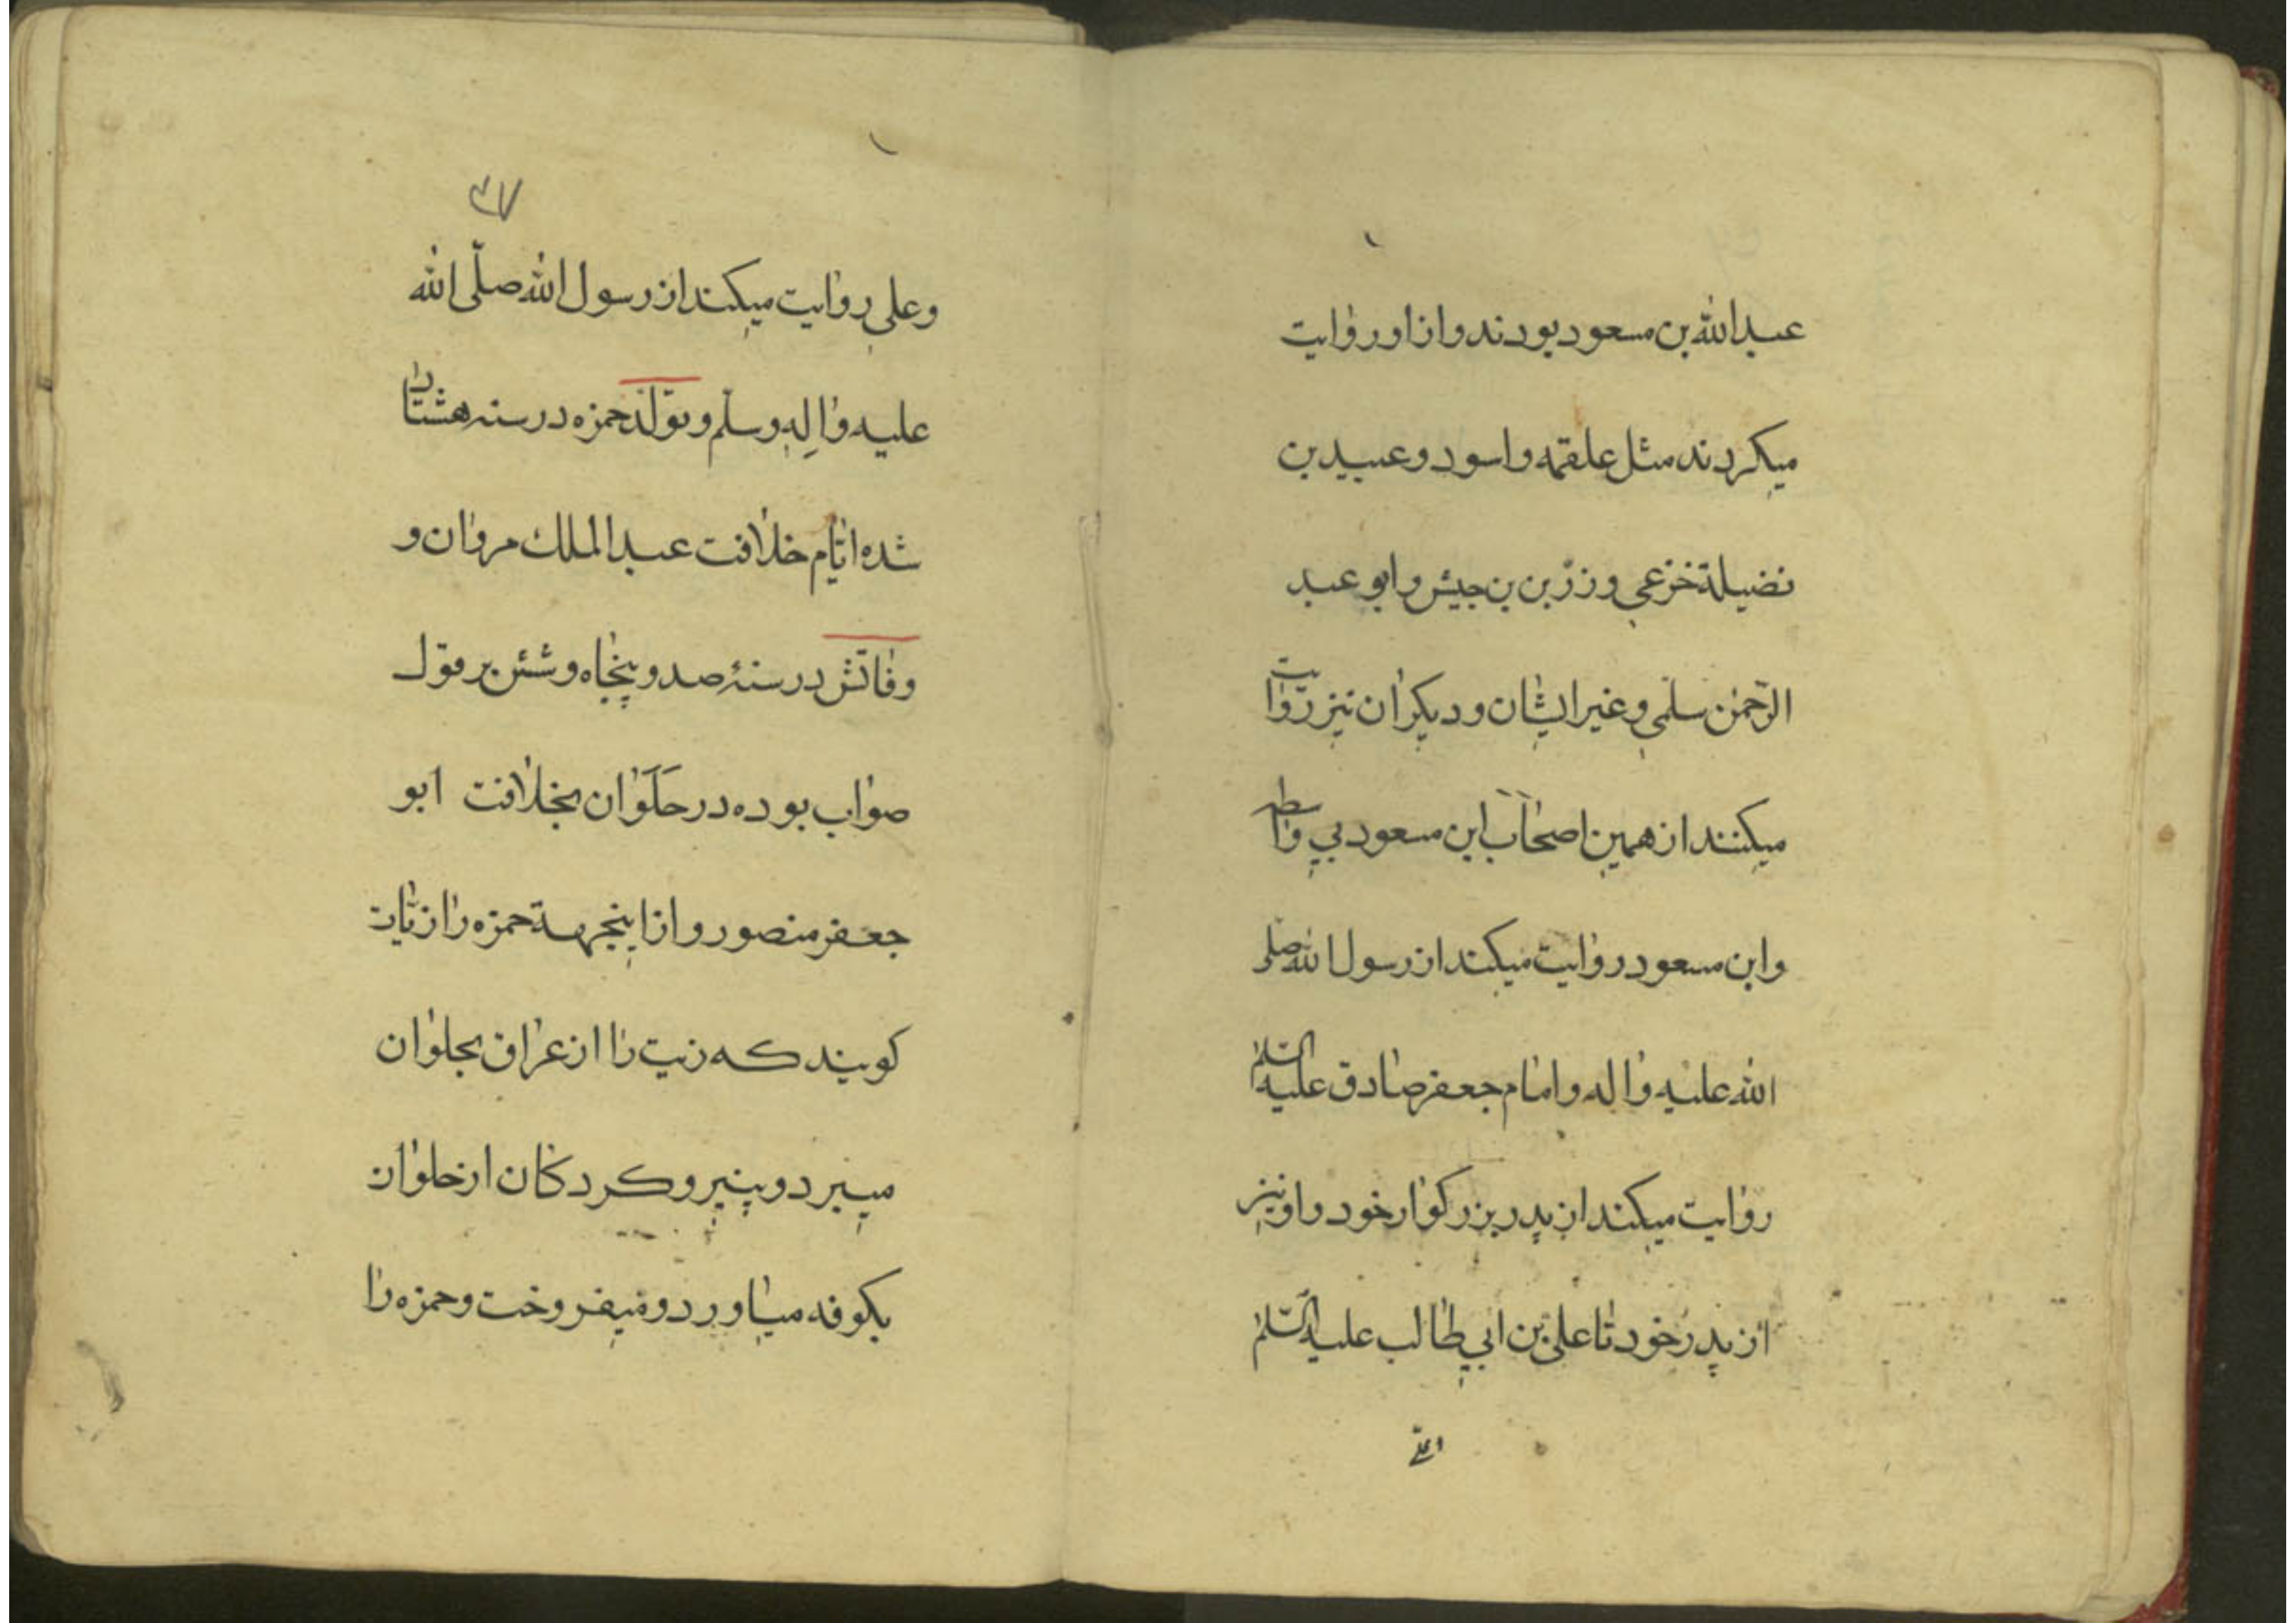 عبدالله بن مسعود بودند و از او روایت
میکردند مثل علقمه و اسود و عبید بن
نضیلة خزعی و زرّ بن بن جیش و ابو عبد
الرّحمٰن سلمی و غیر ایشان و دیکران نیز روایت
میکنند از همین اصحاب ابن مسعود بی واسطه
و ابن مسعود روایت میکند از رسول الله صلی
الله علیه و اله و امام جعفر صادق علیه السّلم
روایت میکند از پدر بزرکوار خود و او نیز
از پدر خود تا علی بن ابی طالب علیه السّلم
وعلی
۳۷
وعلی روایت میکند از رسول الله صلّی الله
علیه و اله وسلّم و تولّد حمزه در سنه هشتاد
شده ایّام خلافت عبد الملك مروان و
وفاتش در سنۀ صد و پنجاه و شش بر قول
صواب بوده در حلوان بخلافت ابو
جعفر منصور و از اینجهة حمزه را زیّات
کویند که زیت را از عراق بحلوان
میبرد و پنیر و کردکان از حلوان
بکوفه میاورد و میفروخت و حمزه را